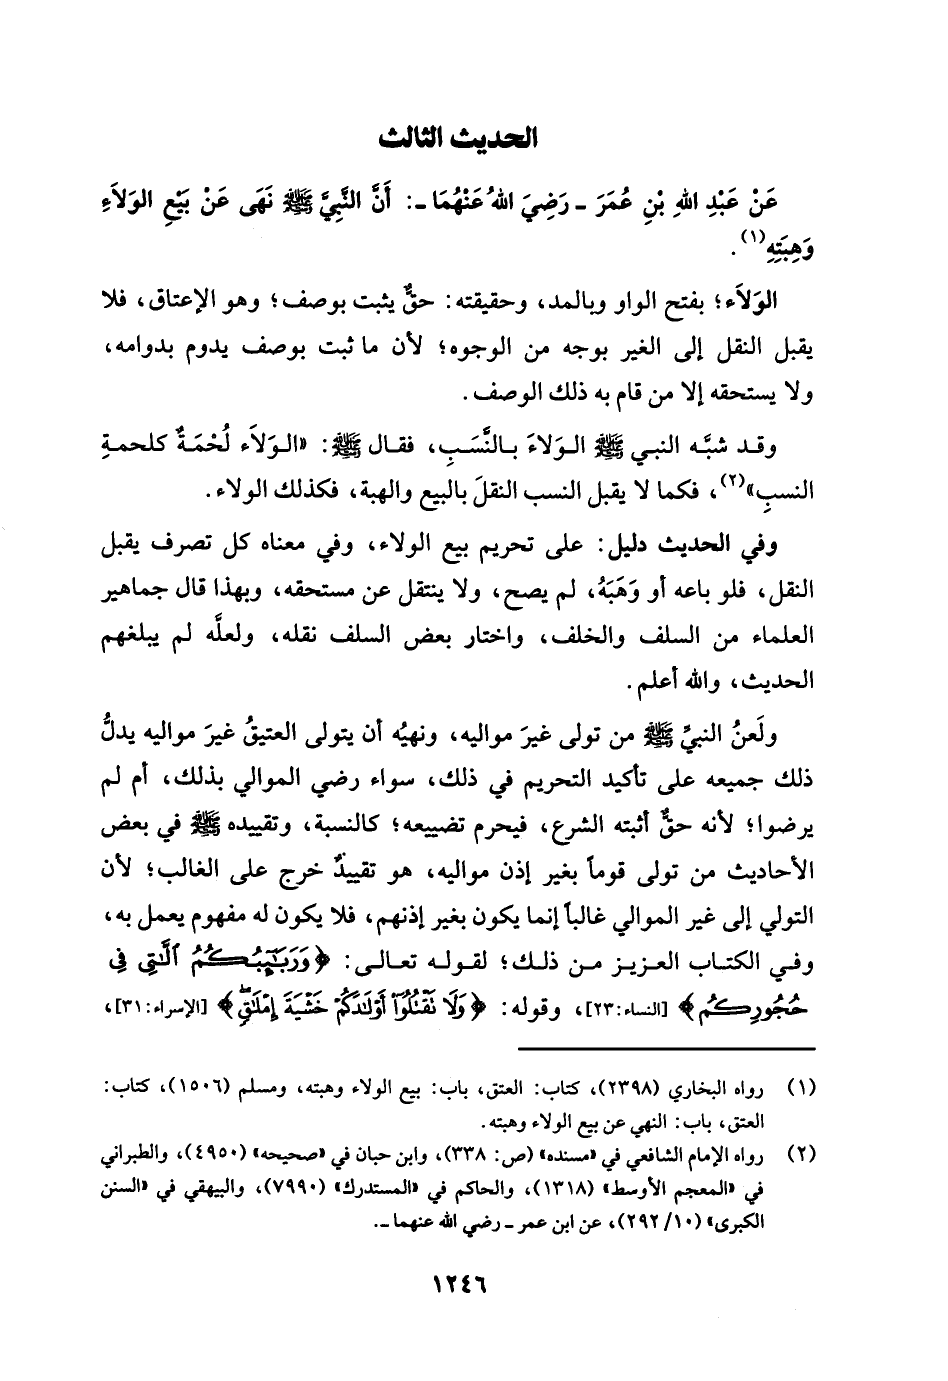 الحديث الثالث
عَنْ عَبْدِ اللهِ بْنِ عُمَرَ ـ رَضِيَ اللهُ عَنْهُمَا ـ: أَنَّ النَّبِيَّ ﷺ نَهَى عَنْ بَيْعِ الوَلَاءِ
وَهِبَتِهِ(١).
الوَلَاء؛ بفتح الواو وبالمد، وحقيقته: حقٌّ يثبت بوصف؛ وهو الإعتاق، فلا
يقبل النقل إلى الغير بوجه من الوجوه؛ لأن ما ثبت بوصف يدوم بدوامه،
ولا يستحقه إلا من قام به ذلك الوصف.
وقد شبَّه النبي ﷺ الولاءَ بالنَّسَبِ، فقال ﷺ: «الوَلَاء لُحْمَةٌ كلحمةِ
النسبِ»(٢)، فكما لا يقبل النسب النقلَ بالبيع والهبة، فكذلك الولاء.
وفي الحديث دليل: على تحريم بيع الولاء، وفي معناه كل تصرف يقبل
النقل، فلو باعه أو وَهَبَهُ، لم يصح، ولا ينتقل عن مستحقه، وبهذا قال جماهير
العلماء من السلف والخلف، واختار بعض السلف نقله، ولعلَّه لم يبلغهم
الحديث، والله أعلم.
ولَعنُ النبيِّ ﷺ من تولى غيرَ مواليه، ونهيُه أن يتولى العتيقُ غيرَ مواليه يدلُّ
ذلك جميعه على تأكيد التحريم في ذلك، سواء رضي الموالي بذلك، أم لم
يرضوا؛ لأنه حقٌّ أثبته الشرع، فيحرم تضييعه؛ كالنسبة، وتقييده ﷺ في بعض
الأحاديث من تولى قوماً بغير إذن مواليه، هو تقييدٌ خرج على الغالب؛ لأن
التولي إلى غير الموالي غالباً إنما يكون بغير إذنهم، فلا يكون له مفهوم يعمل به،
وفي الكتاب العزيز من ذلك؛ لقوله تعالى: ﴿وَرَبَٰٓئِبُكُمُ ٱلَّٰتِى فِى
حُجُورِكُم﴾ [النساء: ٢٣]، وقوله: ﴿وَلَا نَقْتُلُوٓا أَوْلَٰدَكُمْ خَشْيَةَ إِمْلَٰقٍۖ﴾ [الإسراء: ٣١]،
(١) رواه البخاري (٢٣٩٨)، كتاب: العتق، باب: بيع الولاء وهبته، ومسلم (١٥٠٦)، كتاب:
العتق، باب: النهي عن بيع الولاء وهبته.
(٢) رواه الإمام الشافعي في «مسنده» (ص: ٣٣٨)، وابن حبان في «صحيحه» (٤٩٥٠)، والطبراني
في «المعجم الأوسط» (١٣١٨)، والحاكم في «المستدرك» (٧٩٩٠)، والبيهقي في «السنن
الكبرى» (١٠/ ٢٩٢)، عن ابن عمر ـ رضي الله عنهما ـ.
١٢٤٦